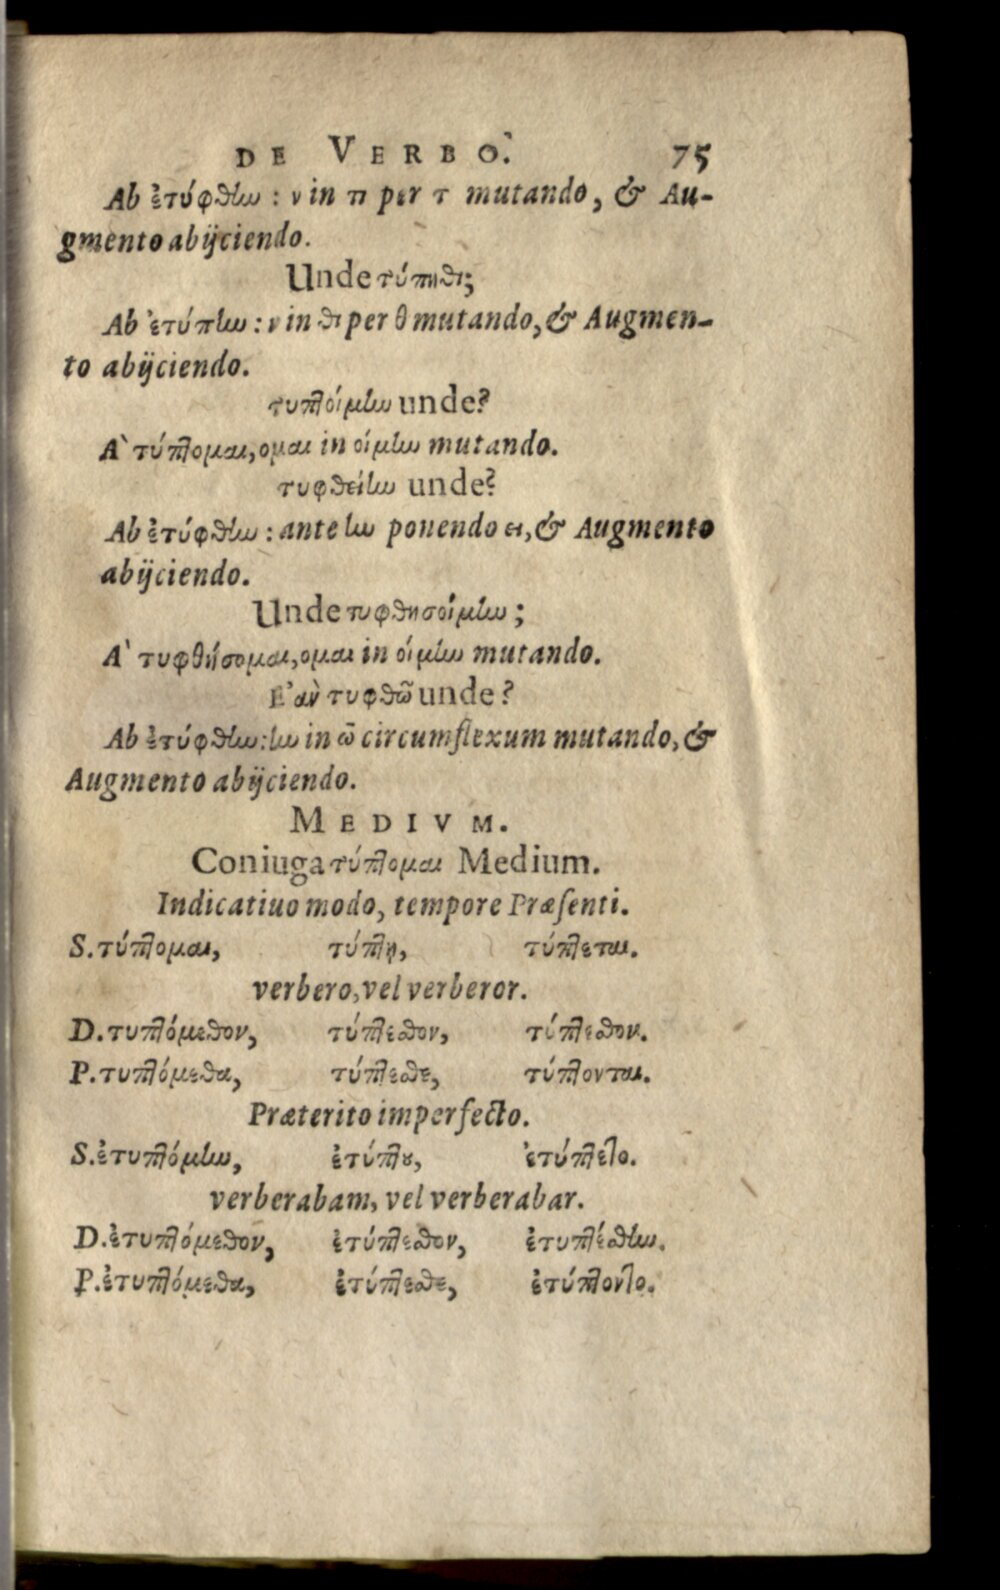 DE VERBO. 75
Ab ἐτύφθην : ν in τι per τ mutando, & Au-
gmento abijciendo.
Unde τύπηθι;
Ab ἐτύπην : ν in θι per θ mutando, & Augmen-
to abijciendo.
τυπτοίμην unde?
A τύπτομαι, ομαι in οίμην mutando.
τυφθείην unde?
Ab ἐτύφθην : ante ην ponendo ει, & Augmento
abijciendo.
Unde τυφθησοίμην ;
A τυφθήσομαι, ομαι in οίμην mutando.
Ε᾽ὰν τυφθῶ unde?
Ab ἐτύφθην : ην in ῶ circumflexum mutando, &
Augmento abijciendo.
MEDIVM.
Coniuga τύπτομαι Medium.
Indicatiuo modo, tempore Præſenti.
S. τύπτομαι, τύπτῃ, τύπτεται.
verbero, vel verberor.
D. τυπτόμεθον, τύπτεσθον, τύπτεσθον.
P. τυπτόμεθα, τύπτεσθε, τύπτονται.
Præterito imperfecto.
S. ἐτυπτόμην, ἐτύπτου, ἐτύπτετο.
verberabam, vel verberabar.
D. ἐτυπτόμεθον, ἐτύπτεσθον, ἐτυπτέσθην.
P. ἐτυπτόμεθα, ἐτύπτεσθε, ἐτύπτοντο.